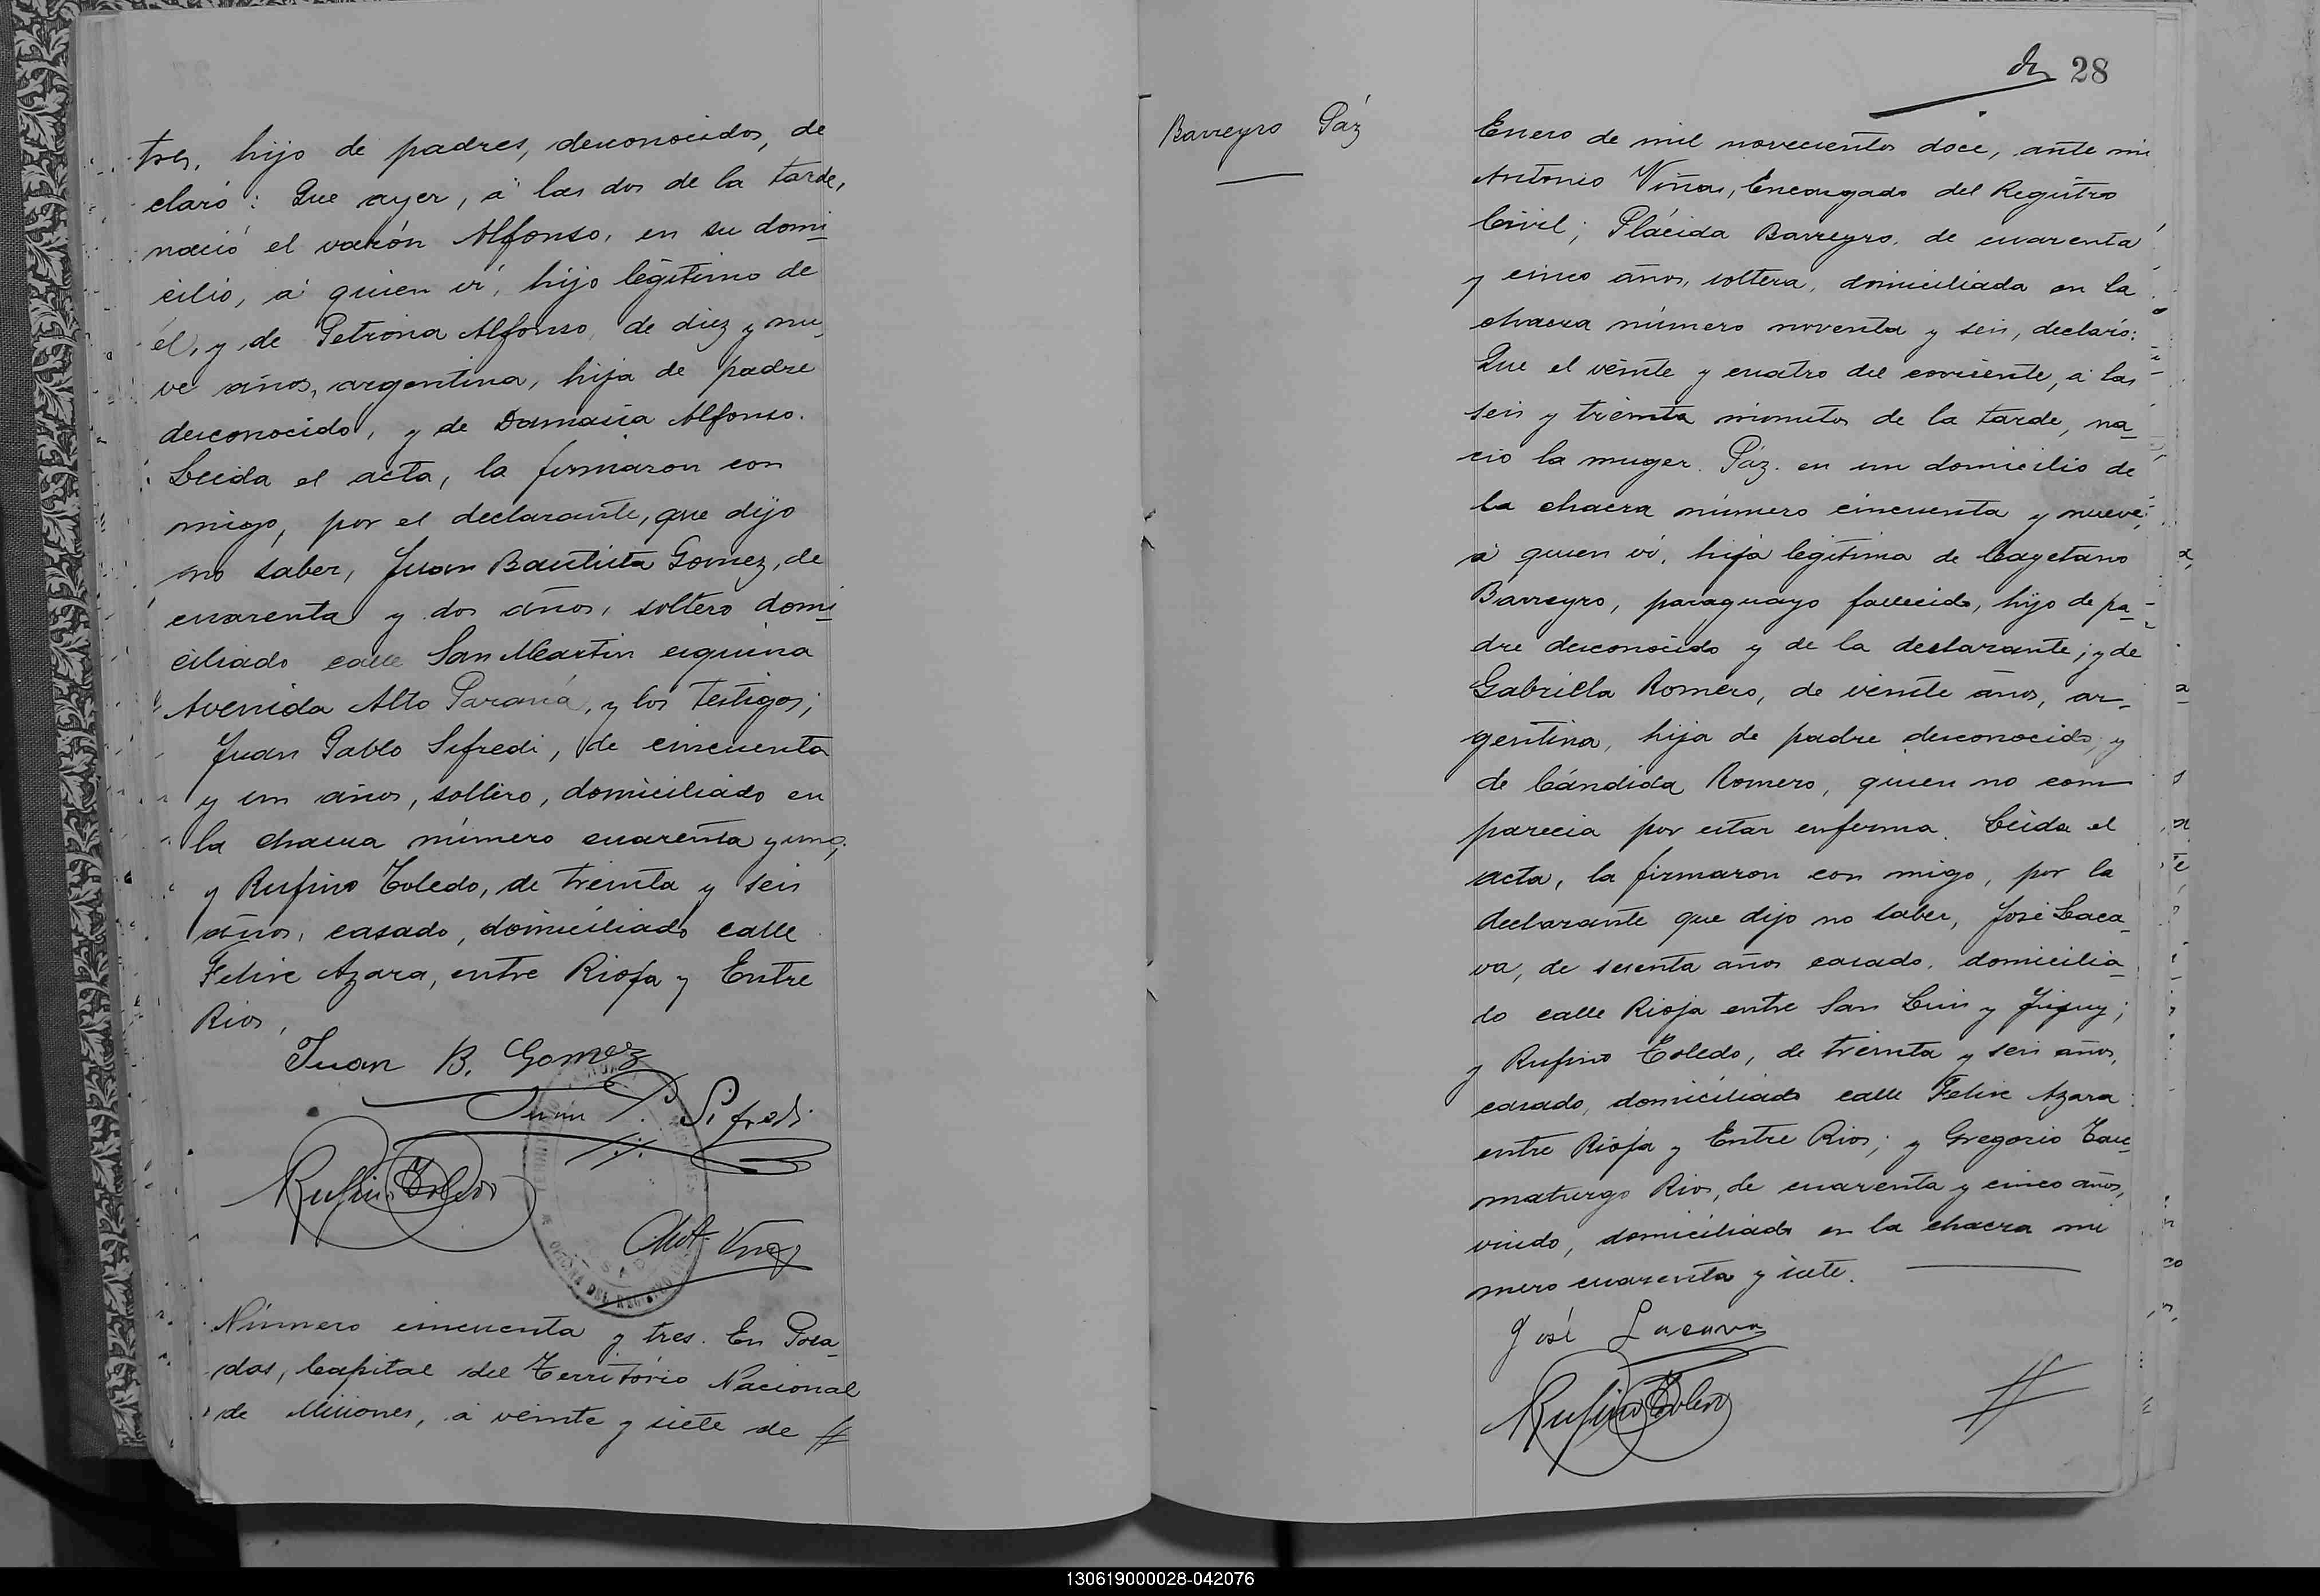 tres, hijo de padres, desconocidos, de
claró: Que ayer, á las dos de la tarde,
nació el varón Alfonso, en su domi-
cilio, á quien vi, hijo legítimo de
él, y de Petrona Alfonso, de diez y nu-
ve años, argentina, hija de padre
desconocido, y de Damasia Alfonso.
Leida el acta, la firmaron con
migo, por el declarante, que dijo
no saber, Juan Bautista Gomez, de
cuarenta y dos años, soltero domi-
ciliado calle San Martin esquina
Avenida Alto Paraná, y los testigos;
Juan Pablo Sifredi, de cincuenta
y un años, soltero, domiciliado en
la chacra número cuarenta y uno;
y Rufino Toledo, de treinta y seis
años, casado, domiciliado calle
Felix Azara, entre Rioja y Entre
Rios,
Juan B. Gomez
Juan P. Sifredi
Rufino Toledo
Ant. Viñas
OFICINA DEL REGISTRO
Número cincuenta y tres. En Posa-
das, Capital del Territorio Nacional
de Misiones, á veinte y siete de //
28
Barreyro Páz
Enero de mil novecientos doce, ante mi
Antonio Viñas, Encargado del Registro
Civil; Plácida Barreyro, de cuarenta
y cinco años, soltera, domiciliada en la
chacra número noventa y seis, declaró:
Que el veinte y cuatro del corriente, á las
seis y treinta minutos de la tarde, na-
ció la muger Páz en un domicilio de
la chacra número cincuenta y nueve,
á quien vi, hija legítima de Cayetano
Barreyro, paraguayo fallecido, hijo de pa-
dre desconocido y de la declarante; y de
Gabriella Romero, de veinte años, ar-
gentina, hija de padre desconocido, y
de Cándida Romero, quien no com
parecia por estar enferma. Leida el
acta, la firmaron con migo, por la
declarante que dijo no saber, José Laca-
va, de sesenta años casado, domicilia-
do calle Rioja entre San Luis y Jujuy;
y Rufino Toledo, de treinta y seis años,
casado, domiciliado calle Felix Azara
entre Rioja y Entre Rios; y Gregorio Tau-
maturgo Rios, de cuarenta y cinco años,
viudo, domiciliado en la chacra nú
mero cuarenta y siete.
José Lacava
Rufino Toledo
//
130619000028-042076